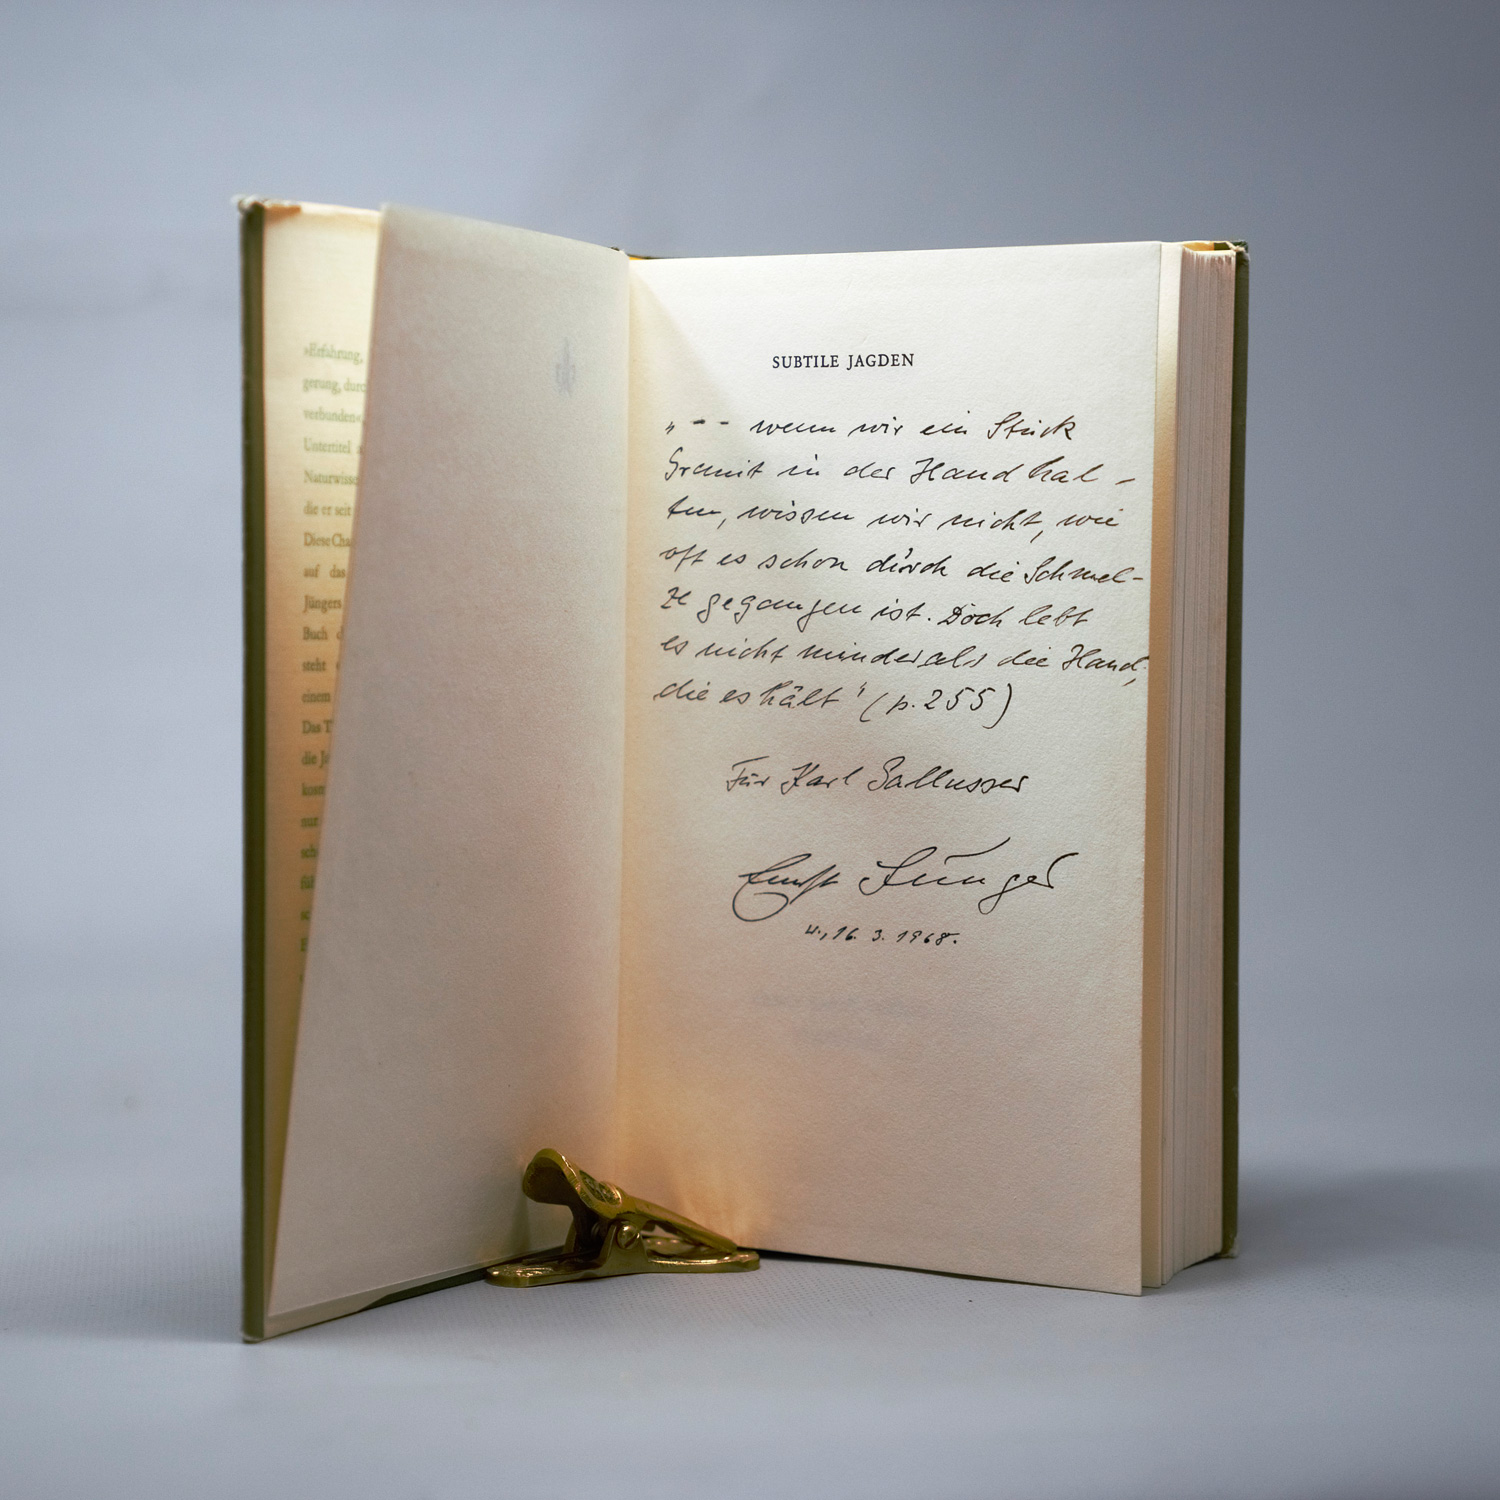 »Erfahrung,
gerung, durc
verbunden«
Untertitel
Naturwisse
die er seit
Diese Cha
auf das
Jüngers
Buch d
steht
einem
Das T
die Je
kosm
nur
sch
füh
SUBTILE JAGDEN
„-- wenn wir ein Stück
Granit in der Hand hal-
ten, wissen wir nicht, wie
oft es schon durch die Schmel-
ze gegangen ist. Doch lebt
es nicht minder als die Hand,
die es hält" (p. 255)
Für Karl
Ernst Jünger
16. 3. 1968.